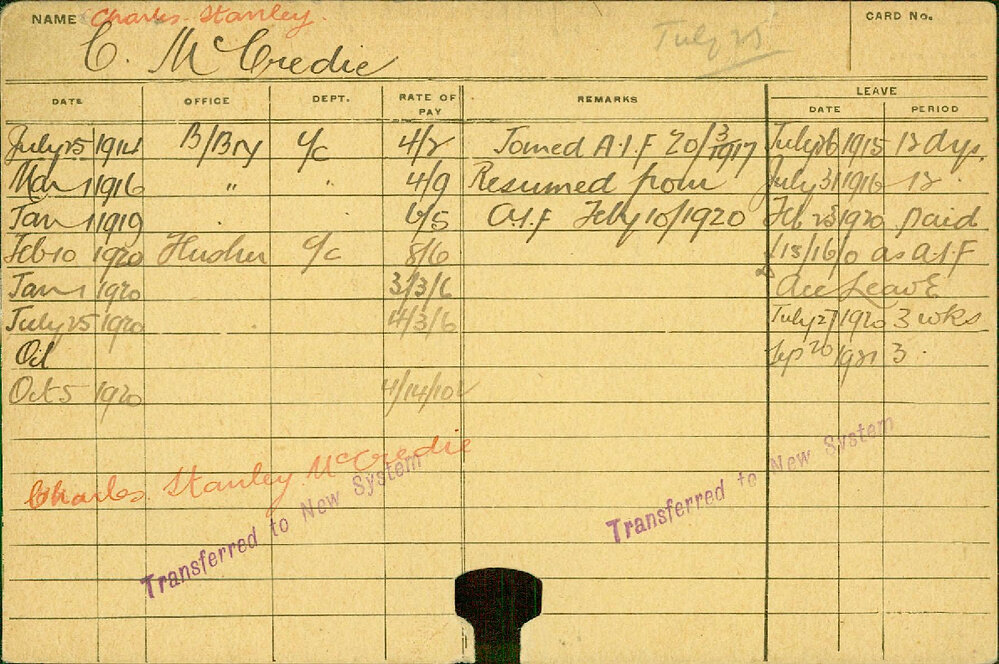 NAME Charles Stanley. CARD No.
C. McCredie July 25
LEAVE
DATE OFFICE DEPT. RATE OF PAY REMARKS DATE PERIOD
July 25 1914 B/Bry C/c 4/2 Joined A.I.F 20/3/1917 July 26 1915 12 dys.
Mar 1 1916 " " 4/9 Resumed from July 31 1916 12 "
Jan 1 1919 " 6/5 A.I.F Feby 10/1920 Feb 23 1920 paid
Feb 10 1920 C/c 8/6 £15/16/0 as A.I.F
Jan 1 1920 3/3/6 Acc Leave
July 25 1920 4/3/6 July 27 1920 3 wks
Sep 20 1921 3 "
Oct 5 1920 4/14/10
Charles Stanley McCredie
Transferred to New System
Transferred to New System